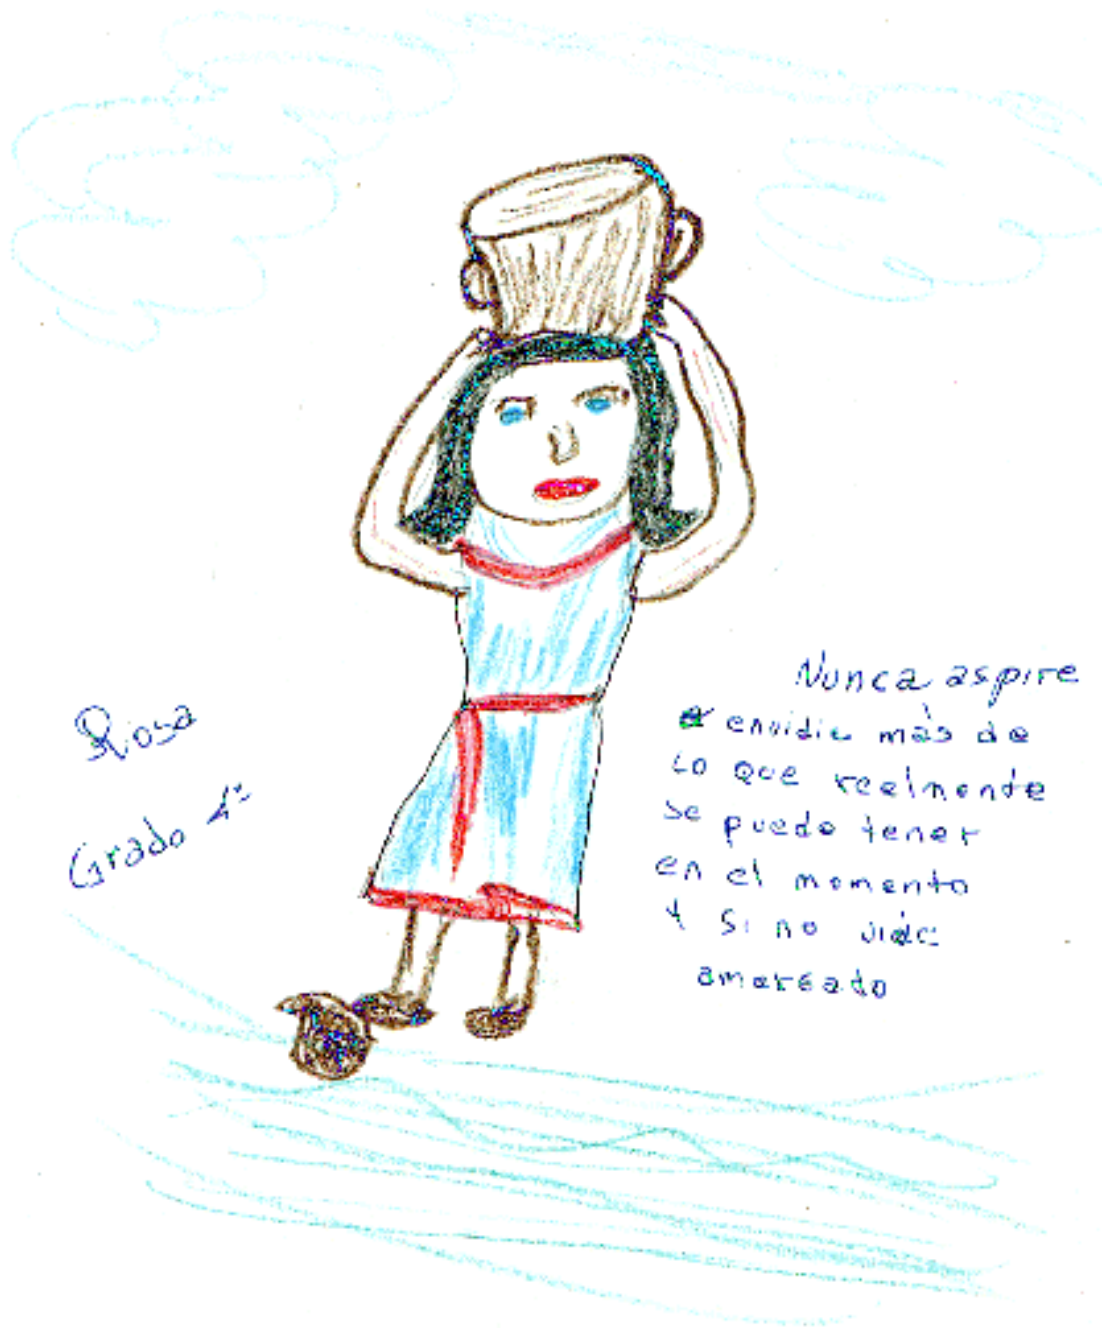 Rosa
Grado 4º
Nunca aspire
envidie más de
lo que realmente
se puede tener
en el momento
Y si no
amargado